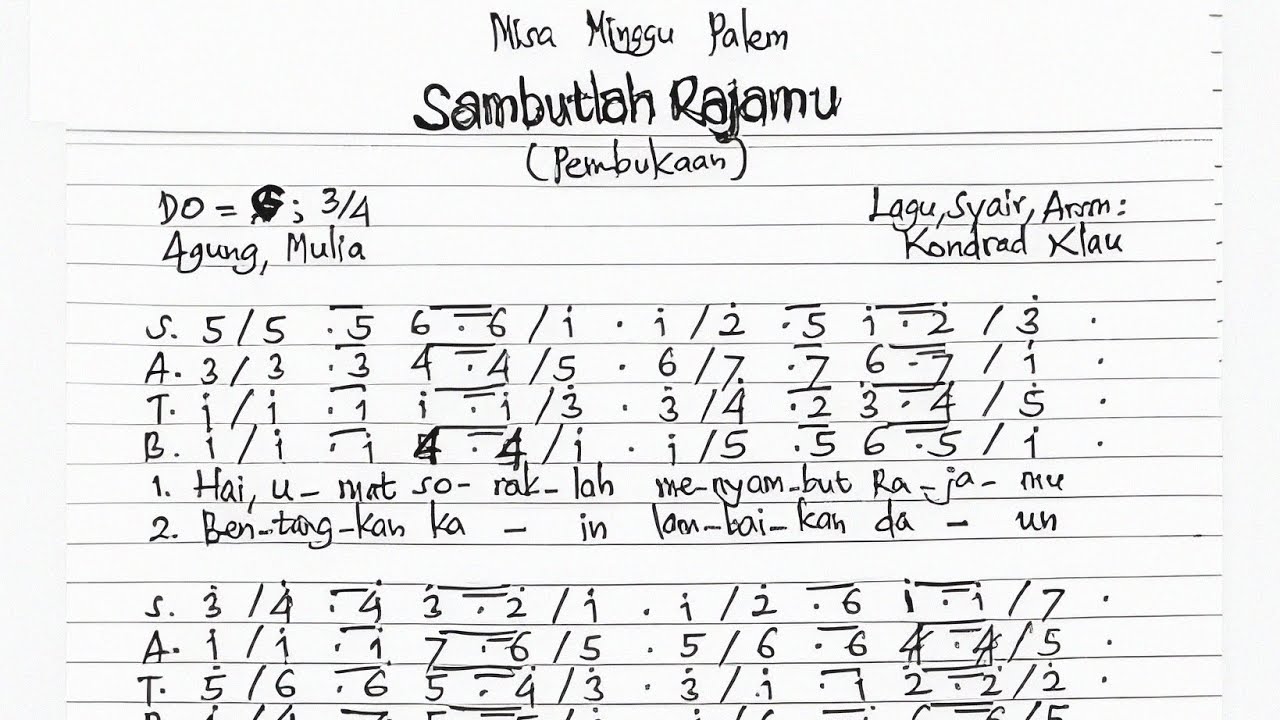 Misa Minggu Palem
Sambutlah Rajamu
(Pembukaan)
DO = G; 3/4
Lagu, Syair, Arsm:
Agung, Mulia
Kondrad Klau
S. 5 / 5 .5 6 . 6 / i . i / 2̇ .5 i . 2̇ / 3̇ .
A. 3 / 3 .3 4 . 4 / 5 . 6 / 7 .7 6 . 7 / i .
T. i / i .i i . i / 3̇ . 3̇ / 4̇ .2̇ 3̇ . 4̇ / 5̇ .
B. i / i .i 4 . 4 / i . i / 5 .5 6 . 5 / i .
1. Hai, u - mat so - rak - lah me - nyam - but Ra - ja - mu
2. Ben - tang - kan ka - in lam - bai - kan da - un
S. 3̇ / 4̇ .4̇ 3̇ . 2̇ / i . i / 2̇ .6 i . i / 7 .
A. i / i .i 7 . 6 / 5 . 5 / 6 .6 4 . 4 / 5 .
T. 5̇ / 6̇ .6̇ 5̇ . 4̇ / 3̇ . 3̇ / i .i 2̇ . 2̇ / 2̇ .